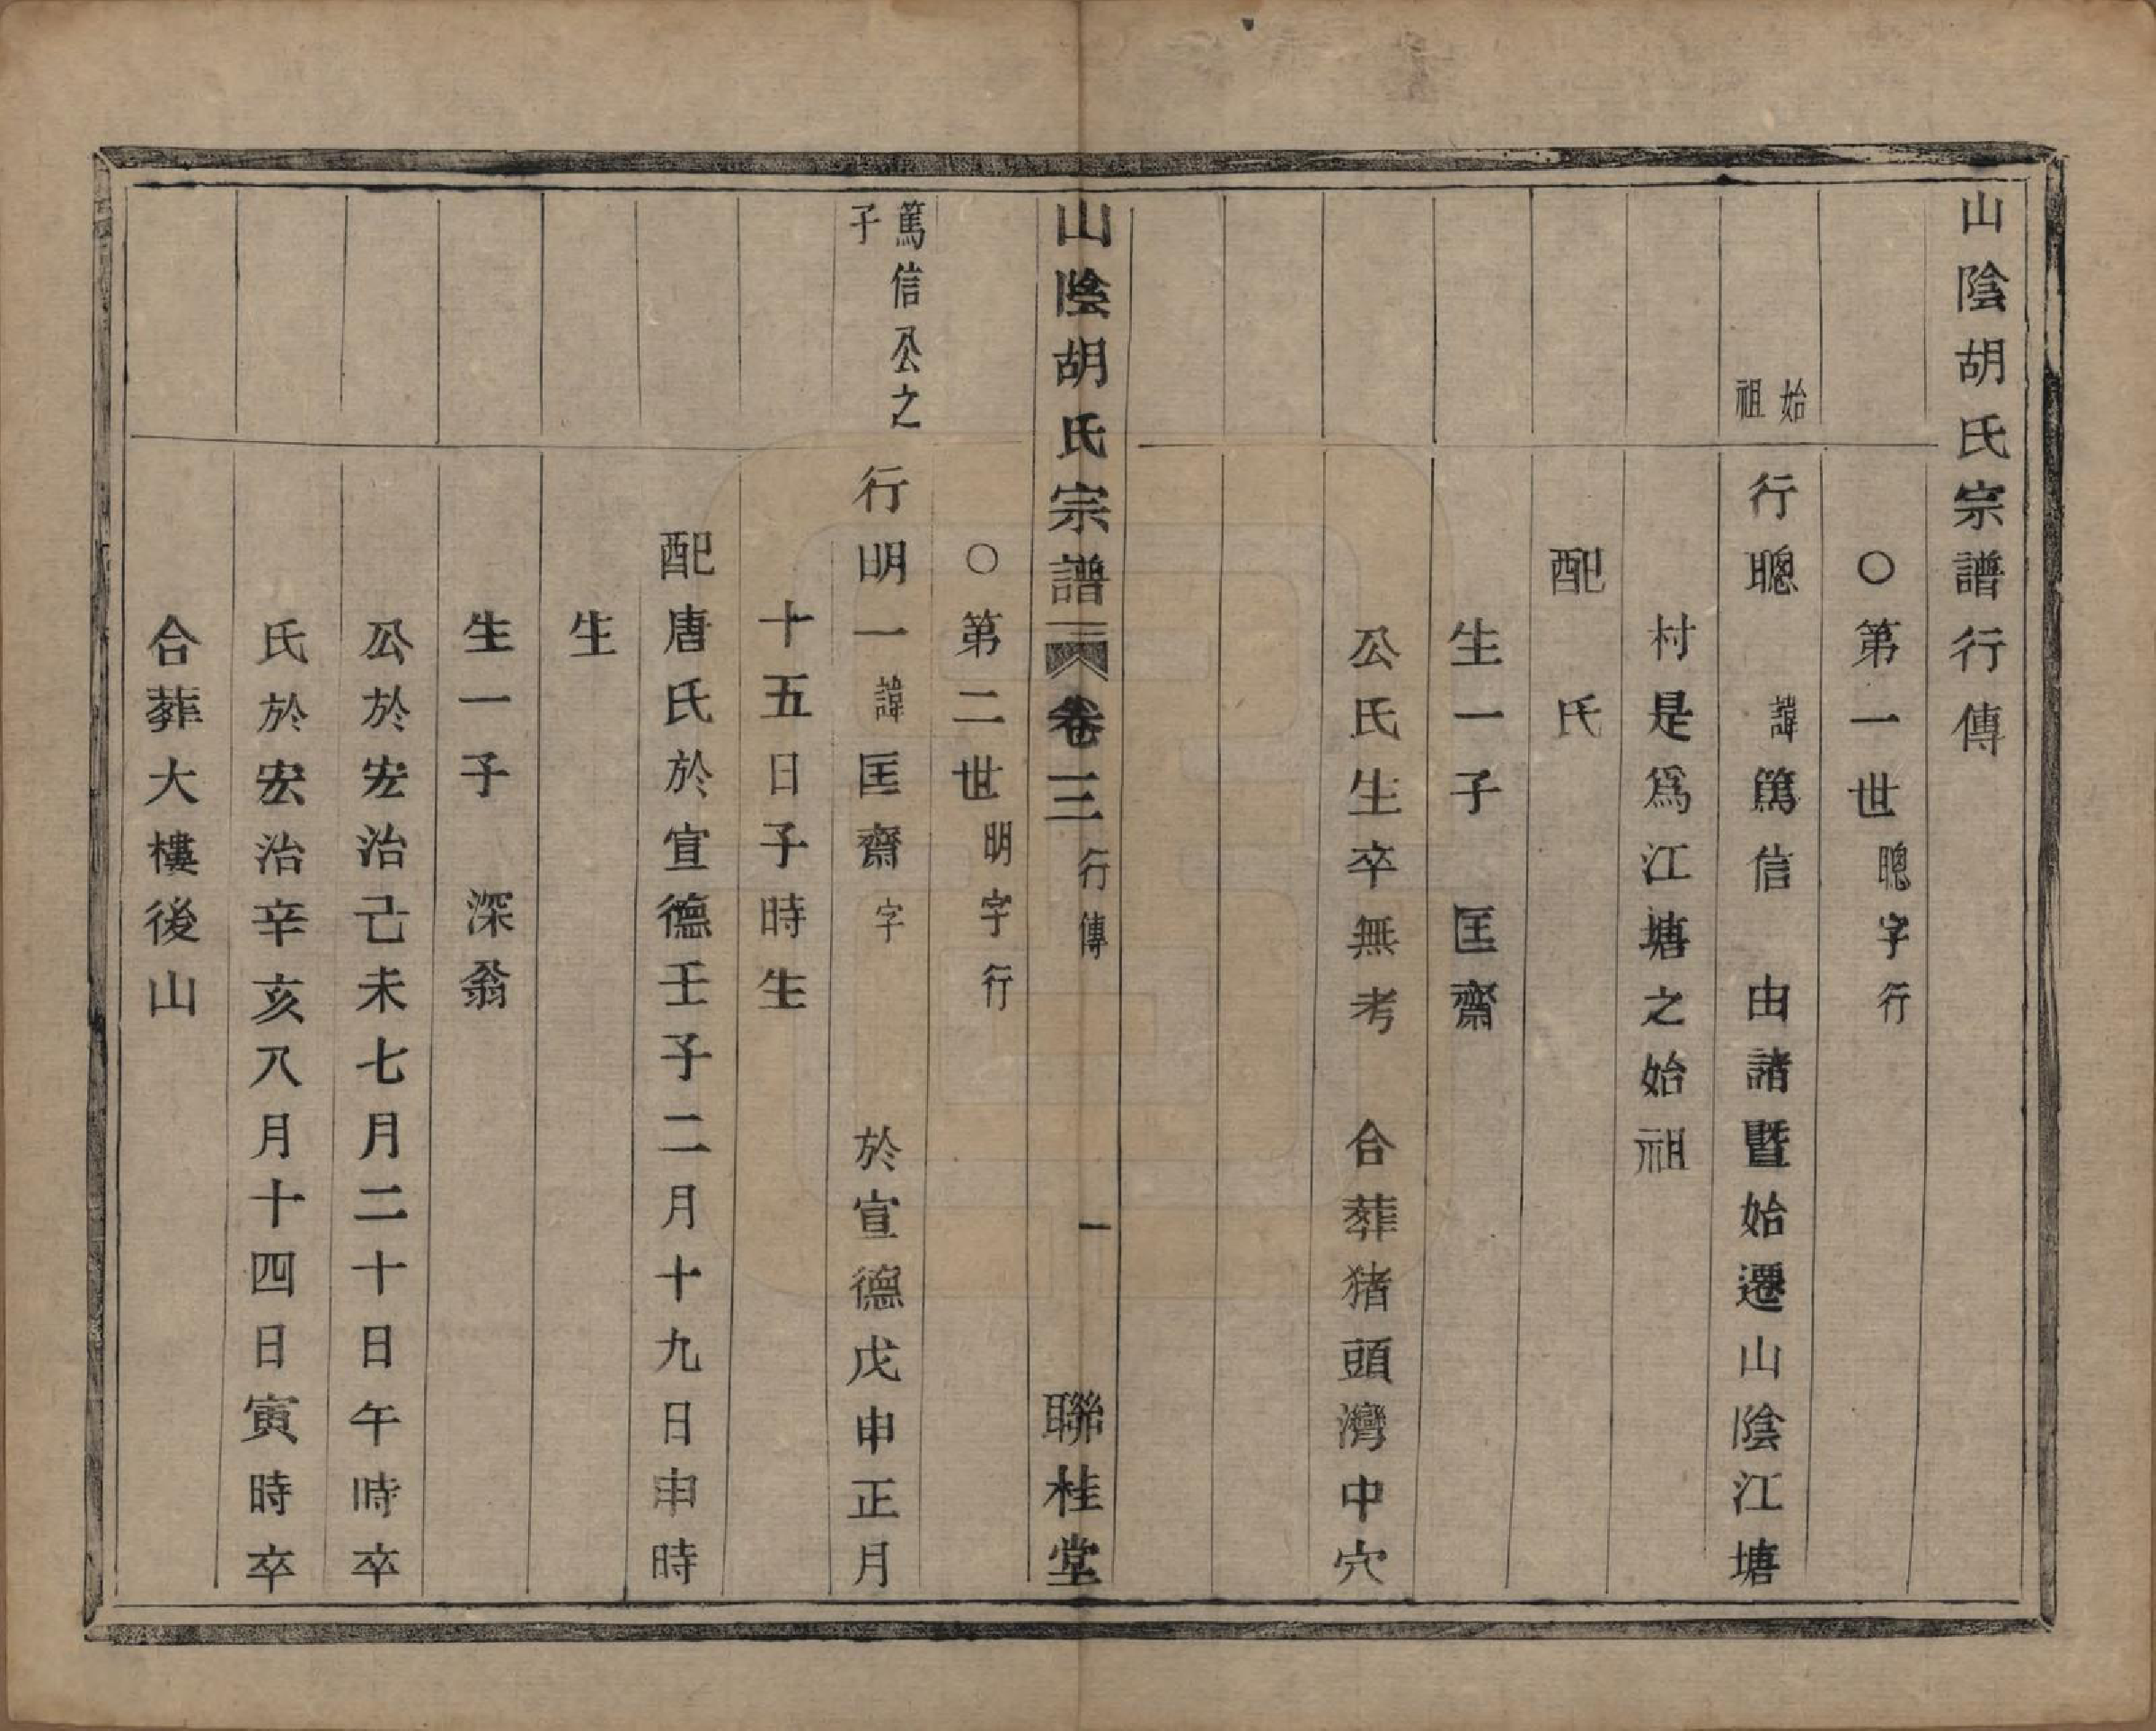 山陰胡氏宗譜行傳
〇第一世聰字行
始祖
行聰 諱篤信 由諸暨始遷山陰江塘
村是爲江塘之始祖
配 氏
生一子 匡齋
公氏生卒無考 合葬猪頭灣中穴
山陰胡氏宗譜 卷三 行傳 一 聯桂堂
〇第二世明字行
篤信公之子
行明一諱匡齋字 於宣德戊申正月
十五日子時生
配唐氏於宣德壬子二月十九日申時
生
生一子 深翁
公於宏治己未七月二十日午時卒
氏於宏治辛亥八月十四日寅時卒
合葬大樓後山